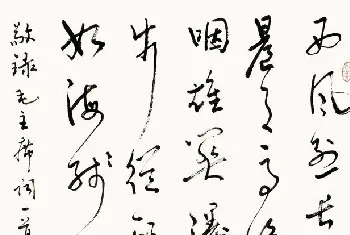 西风烈长
晨
咽雄關漫
步從
如海残
敬録毛主席词一首